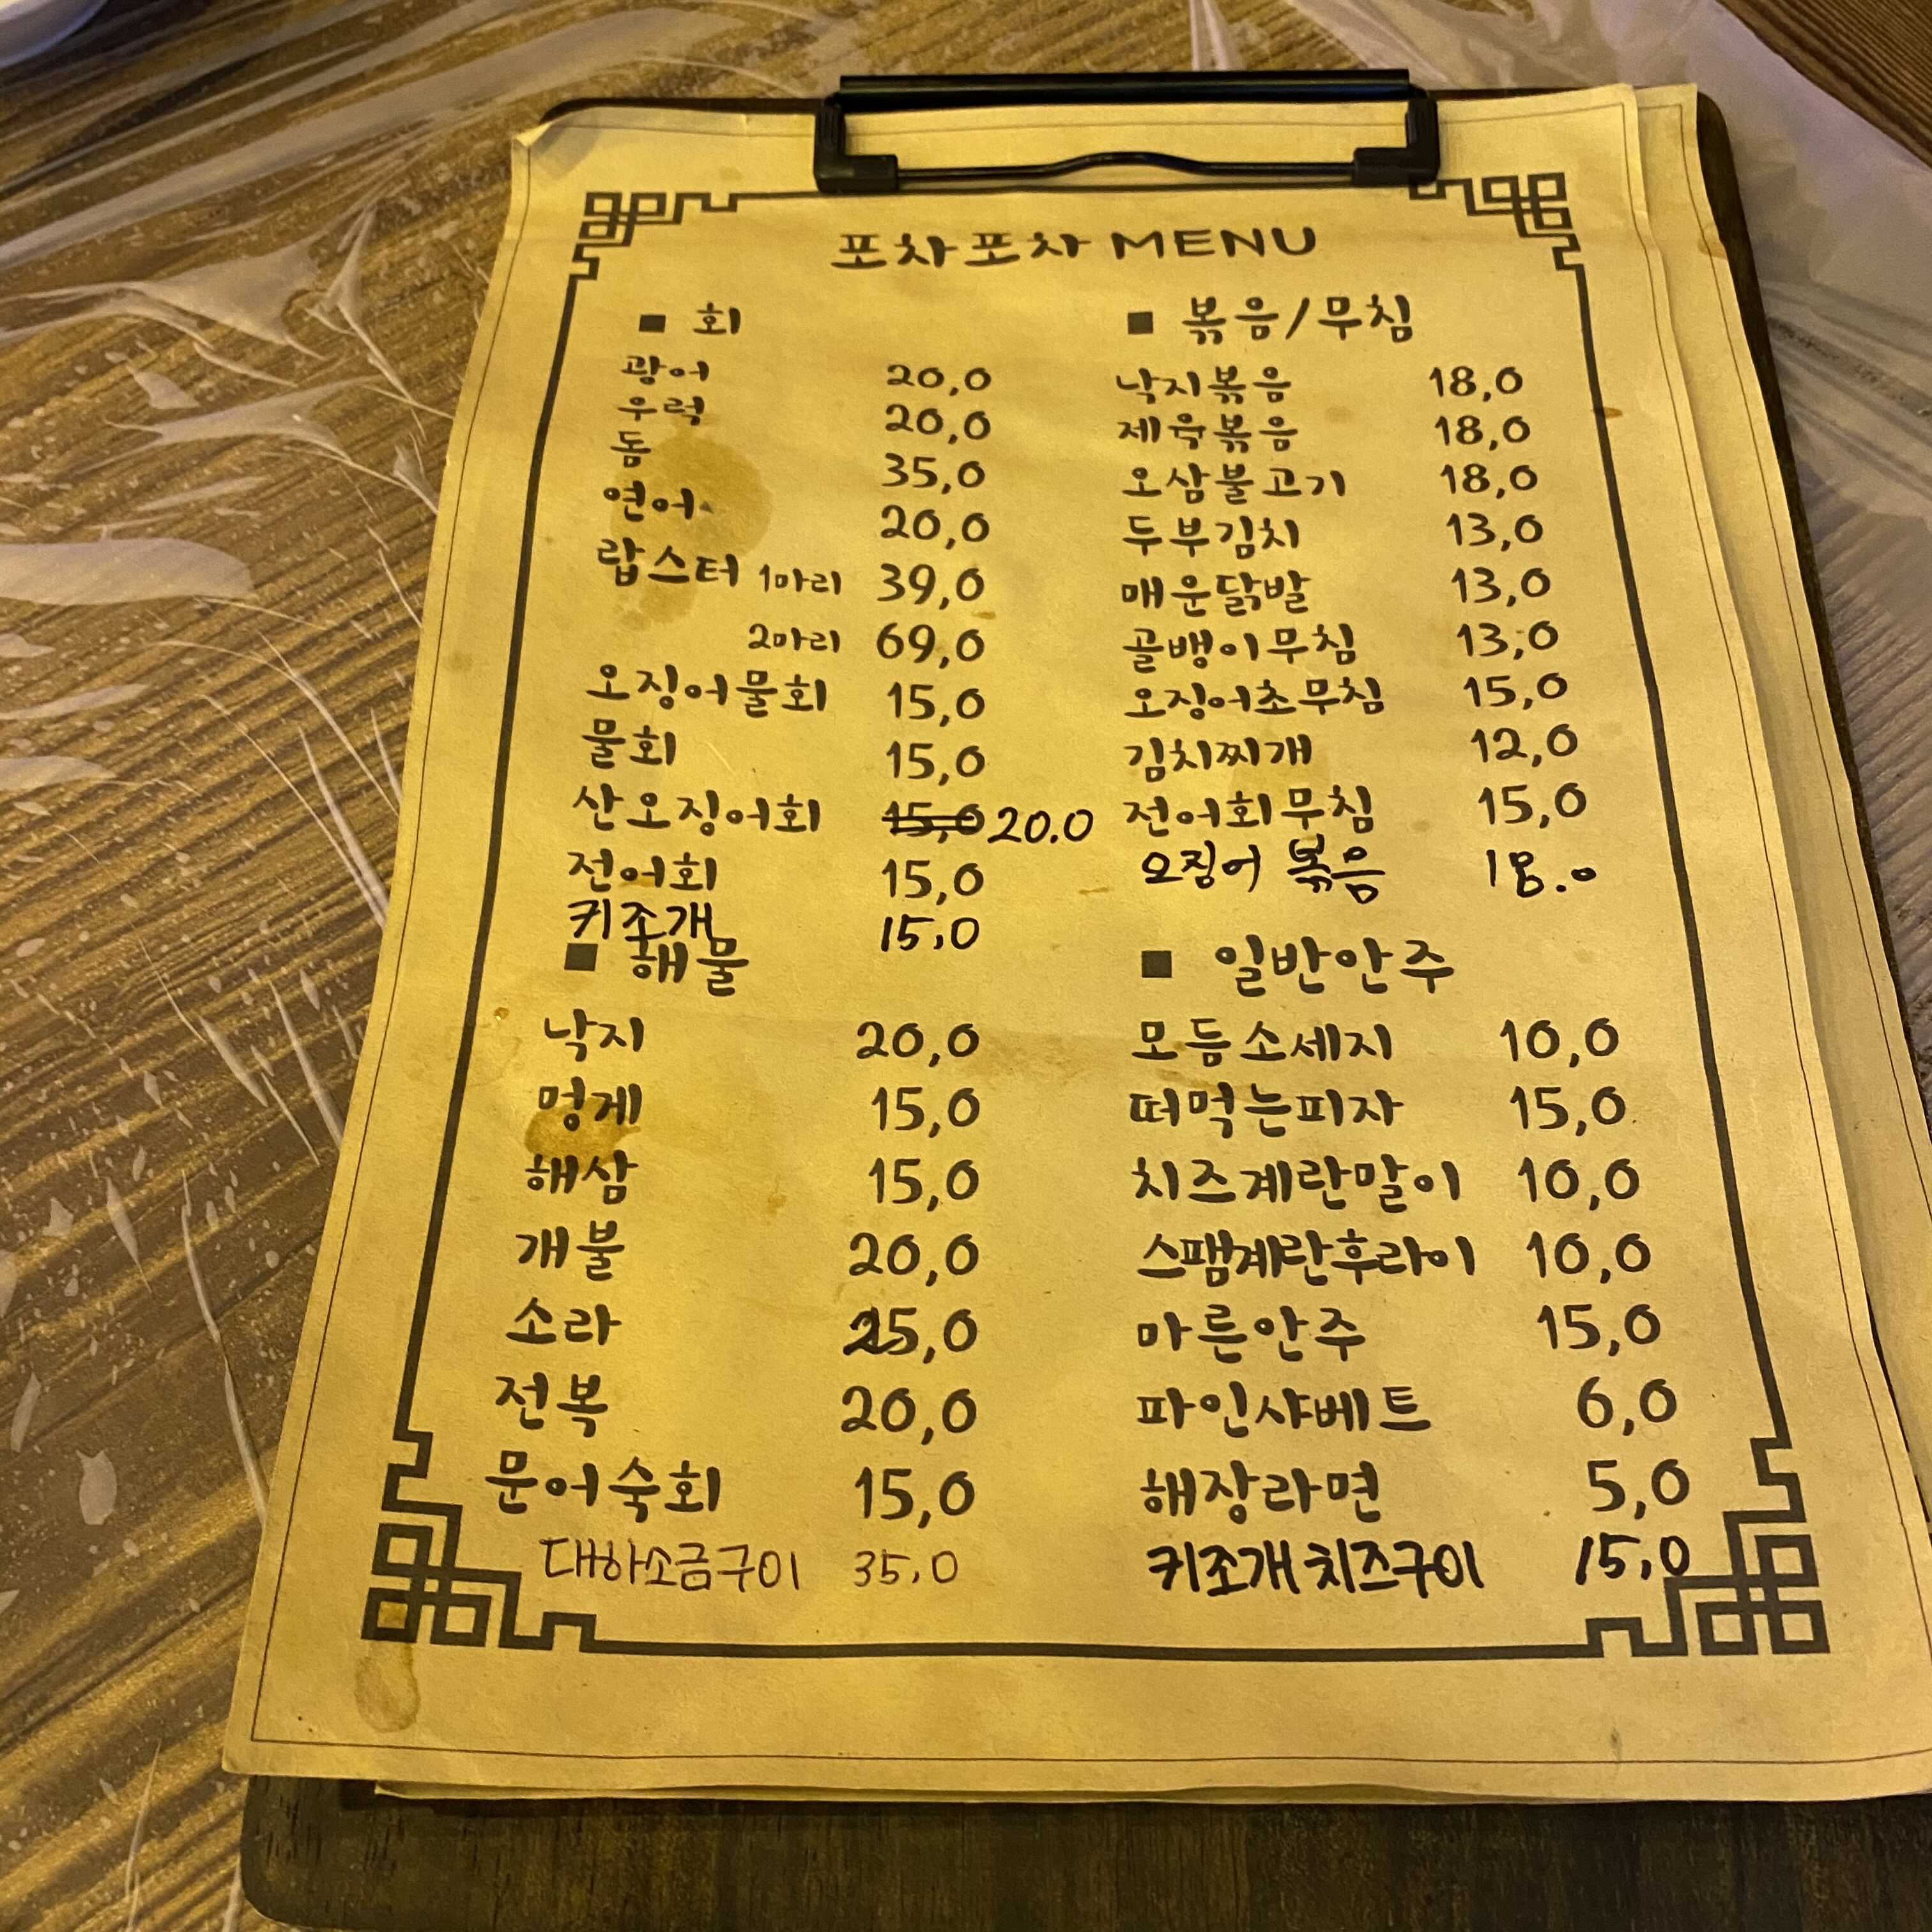 포차포차 MENU
■ 회
광어 20,0
우럭 20,0
돔 35,0
연어 20,0
랍스터 1마리 39,0
2마리 69,0
오징어물회 15,0
물회 15,0
산오징어회 15,0 20.0
전어회 15,0
키조개 15,0
■ 해물
낙지 20,0
멍게 15,0
해삼 15,0
개불 20,0
소라 25,0
전복 20,0
문어숙회 15,0
대하소금구이 35,0
■ 볶음/무침
낙지볶음 18,0
제육볶음 18,0
오삼불고기 18,0
두부김치 13,0
매운닭발 13,0
골뱅이무침 13,0
오징어초무침 15,0
김치찌개 12,0
전어회무침 15,0
오징어 볶음 18.0
■ 일반안주
모듬소세지 10,0
떠먹는피자 15,0
치즈계란말이 10,0
스팸계란후라이 10,0
마른안주 15,0
파인샤베트 6,0
해장라면 5,0
키조개치즈구이 15,0